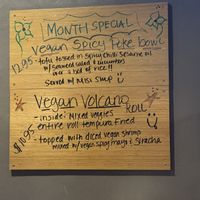 MONTH SPECIAL
Vegan Spicy Poke bowl
12.95 - tofu tossed in spicy chili sesame oil
w/ seaweed salad & cucumbers
over a ball of rice!!
Served w/ Miso Soup
Vegan Volcano
Roll
- inside: Mixed veggies
entire roll tempura Fried
$10.95
- topped with diced vegan shrimp
mixed w/ vegan spicy mayo & Siracha